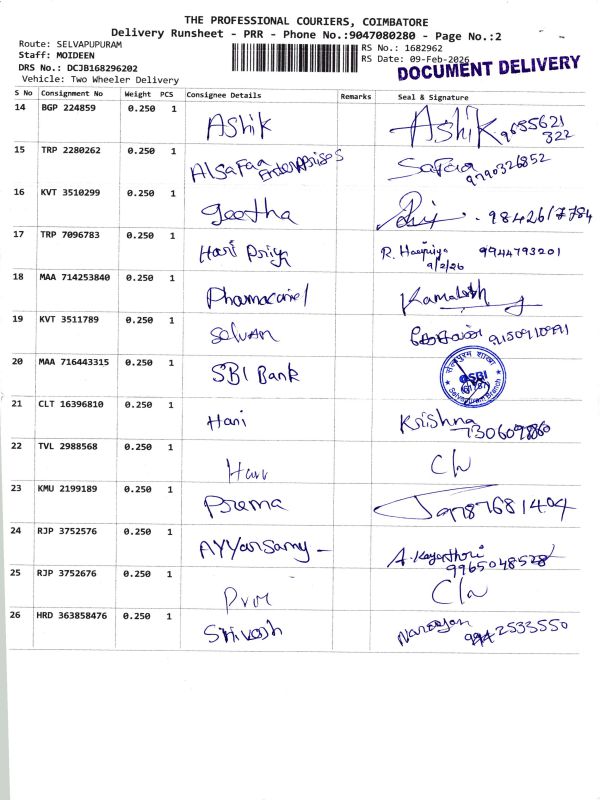 THE PROFESSIONAL COURIERS, COIMBATORE
Delivery Runsheet - PRR - Phone No.:9047080280 - Page No.:2
Route: SELVAPUPURAM
RS No.: 1682962
Staff: MOIDEEN
RS Date: 09-Feb-2026
DOCUMENT DELIVERY
DRS No.: DCJB168296202
Vehicle: Two Wheeler Delivery
S No Consignment No Weight PCS Consignee Details Remarks Seal & Signature
14 BGP 224859 0.250 1 Ashik Ashik
15 TRP 2280262 0.250 1 Alsafaa Enterprises Safaa 9790326852
16 KVT 3510299 0.250 1 geetha
17 TRP 7096783 0.250 1 Hari Priya R. Haripriya 9944793201
9/2/26
18 MAA 714253840 0.250 1 Kamalesh
19 KVT 3511789 0.250 1 Selvan
20 MAA 716443315 0.250 1 SBI Bank SBI Selvapuram Branch
21 CLT 16396810 0.250 1 Hari Krishna
22 TVL 2988568 0.250 1 Hari
23 KMU 2199189 0.250 1 Prema
24 RJP 3752576 0.250 1 AYYarsamy -
25 RJP 3752676 0.250 1
26 HRD 363858476 0.250 1 Narayan